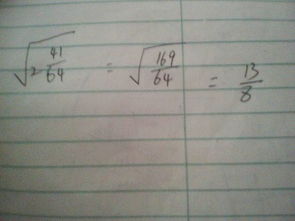 √(2 41/64) = √(169/64) = 13/8